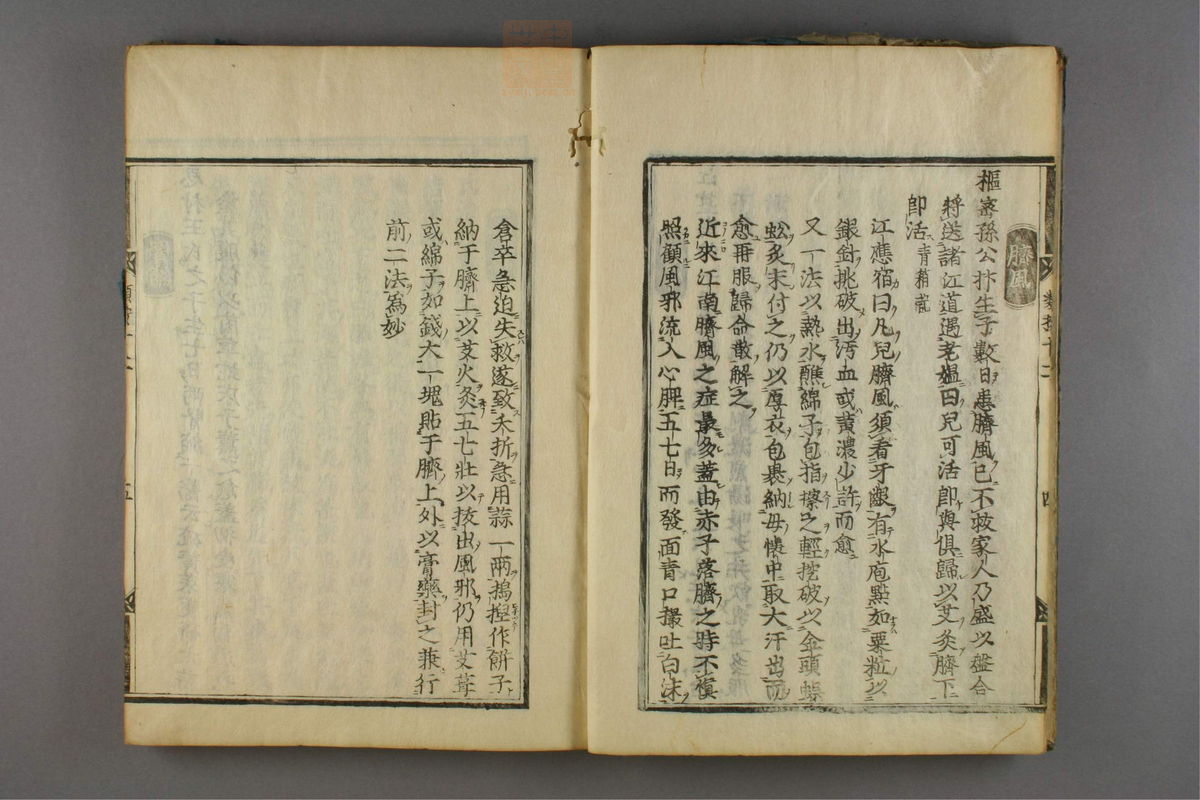 臍風
樞密孫公抃生子數日患臍風已不救家人乃盛以盤合
將送諸江道遇老媼曰兒可活即與俱歸以艾灸臍下
即活青箱記
江應宿曰凡兒臍風須看牙齦有水庖㸃如粟粒以
銀針挑破出汚血或黄濃少許而愈
又一法以熱水蘸綿子包指擦之輕挖破以金頭蜈
蚣炙末付之仍以厚衣包裹納母懷中取大汗出而
愈再服歸命散解之
近來江南臍風之症最多蓋由赤子落臍之時不慎
照顧風邪流入心脾五七日而發面青口撮吐白沫
四
倉卒急迫失救遂致夭折急用蒜一兩搗揑作餅子
納于臍上以艾火灸五七壯以拔出風邪仍用艾茸
或綿子如錢大一塊貼于臍上外以膏藥封之兼行
前二法爲妙
五